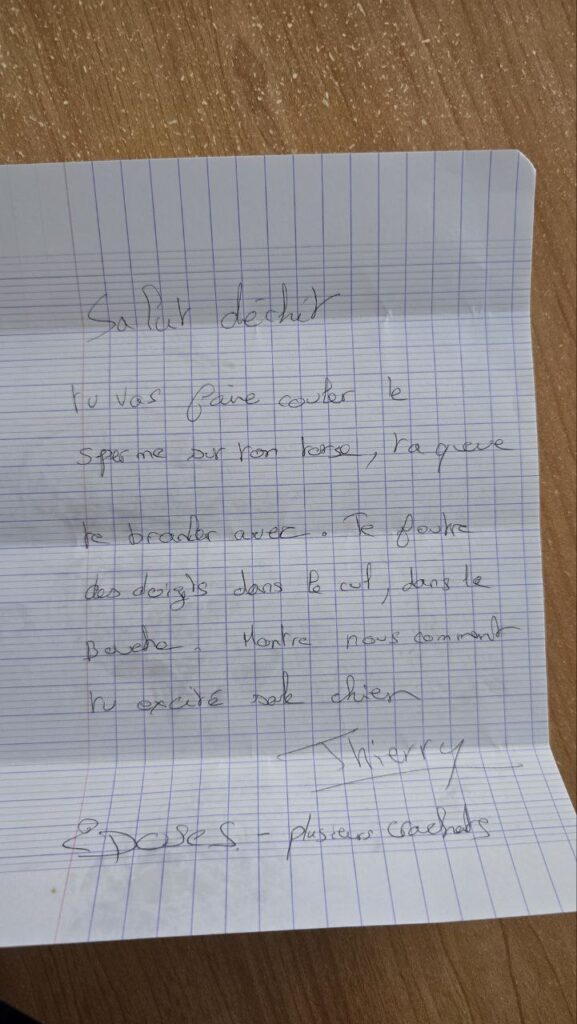 Salut déchet
tu vas faire couler le
sperme sur ton torse, ta queue
te branler avec. Te foutre
des doigts dans le cul, dans la
Bouche. Montre nous comment
tu excité sale chien
Thierry
2 Doses - plusieurs crachats